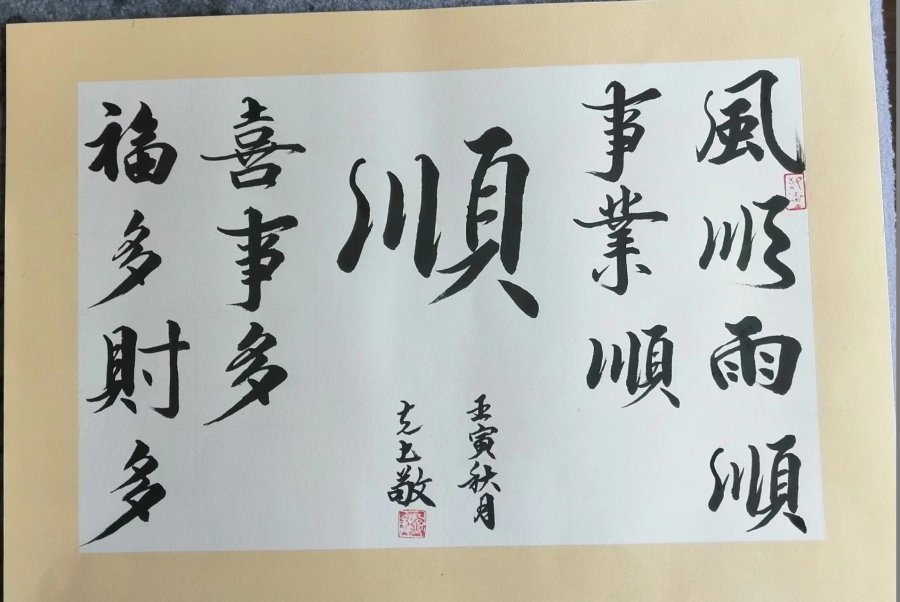 風順雨順
事業順
順
喜事多
福多財多
壬寅秋月
克土敬